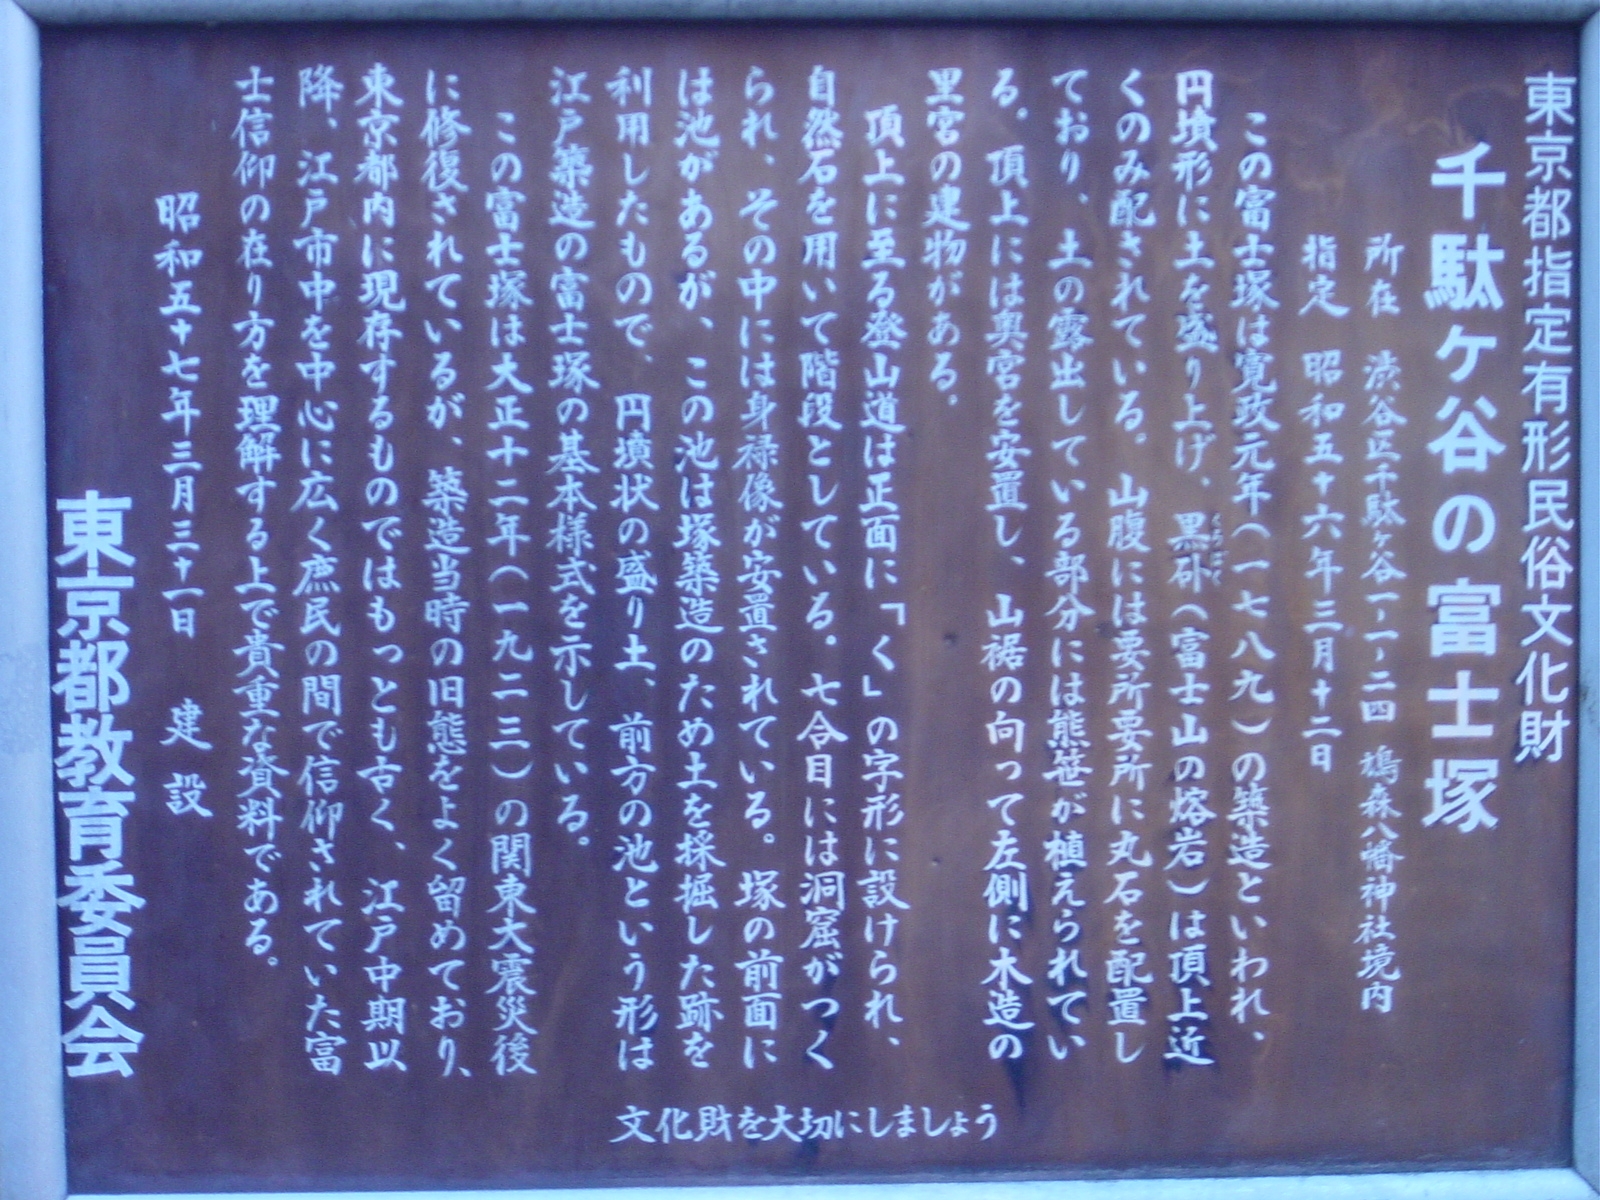 東京都指定有形民俗文化財
千駄ヶ谷の富士塚
所在　渋谷区千駄ヶ谷一ー一ー二四　鳩森八幡神社境内
指定　昭和五十六年三月十二日
この富士塚は寛政元年（一七八九）の築造といわれ、
円墳形に土を盛り上げ、黒砕（富士山の熔岩）は頂上近
くのみ配されている。山腹には要所要所に丸石を配置し
ており、土の露出している部分には熊笹が植えられてい
る。頂上には奥宮を安置し、山裾の向って左側に木造の
里宮の建物がある。
頂上に至る登山道は正面に「く」の字形に設けられ、
自然石を用いて階段としている。七合目には洞窟がつく
られ、その中には身禄像が安置されている。塚の前面に
は池があるが、この池は塚築造のため土を採掘した跡を
利用したもので、円墳状の盛り土、前方の池という形は
江戸築造の富士塚の基本様式を示している。
この富士塚は大正十二年（一九二三）の関東大震災後
に修復されているが、築造当時の旧態をよく留めており、
東京都内に現存するものではもっとも古く、江戸中期以
降、江戸市中を中心に広く庶民の間で信仰されていた富
士信仰の在り方を理解する上で貴重な資料である。
昭和五十七年三月三十一日　建設
東京都教育委員会
文化財を大切にしましょう